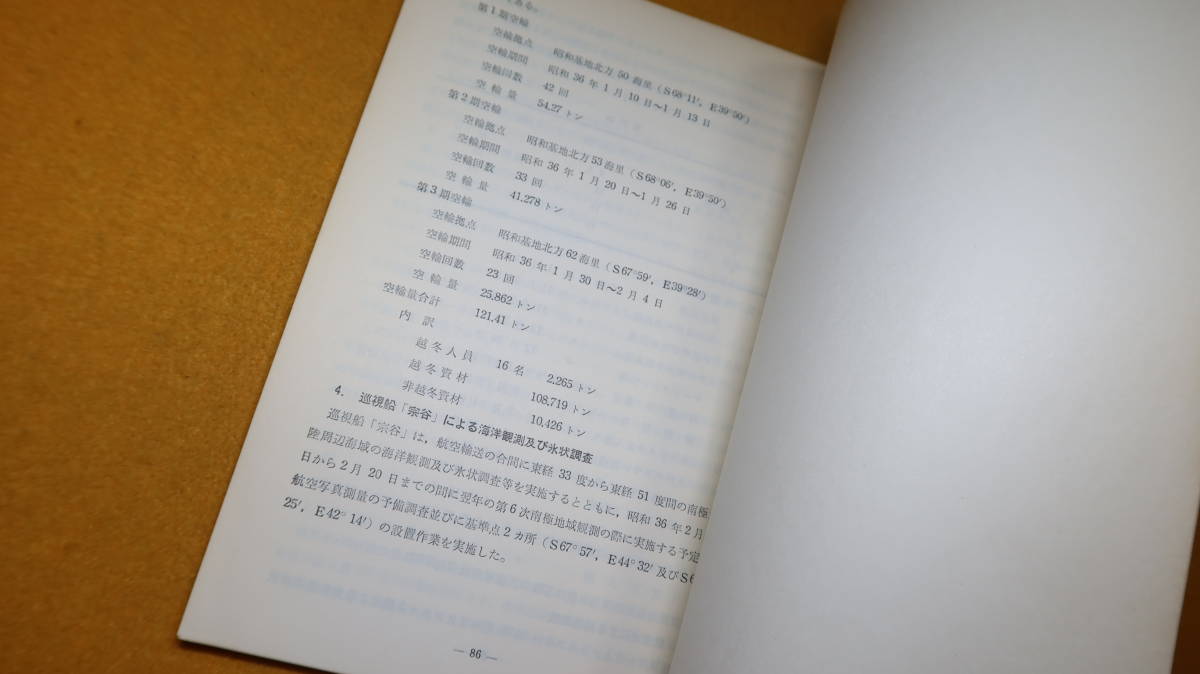 である。
第1期空輸
空輸拠点 昭和基地北方50海里(S68°11′, E39°50′)
空輸期間 昭和36年1月10日~1月13日
空輸回数 42回
空輸量 54.27トン
第2期空輸
空輸拠点 昭和基地北方53海里(S68°06′, E39°50′)
空輸期間 昭和36年1月20日~1月26日
空輸回数 33回
空輸量 41.278トン
第3期空輸
空輸拠点 昭和基地北方62海里(S67°59′, E39°28′)
空輸期間 昭和36年1月30日~2月4日
空輸回数 23回
空輸量 25.862トン
空輸量合計 121.41トン
内訳
越冬人員 16名 2.265トン
越冬資材 108.719トン
非越冬資材 10.426トン
4. 巡視船「宗谷」による海洋観測及び氷状調査
巡視船「宗谷」は,航空輸送の合間に東経33度から東経51度間の南極
陸周辺海域の海洋観測及び氷状調査等を実施するとともに,昭和36年2月
日から2月20日までの間に翌年の第6次南極地域観測の際に実施する予定
航空写真測量の予備調査並びに基準点2カ所(S67°57′, E44°32′及びS6
25′, E42°14′)の設置作業を実施した。
— 86 —